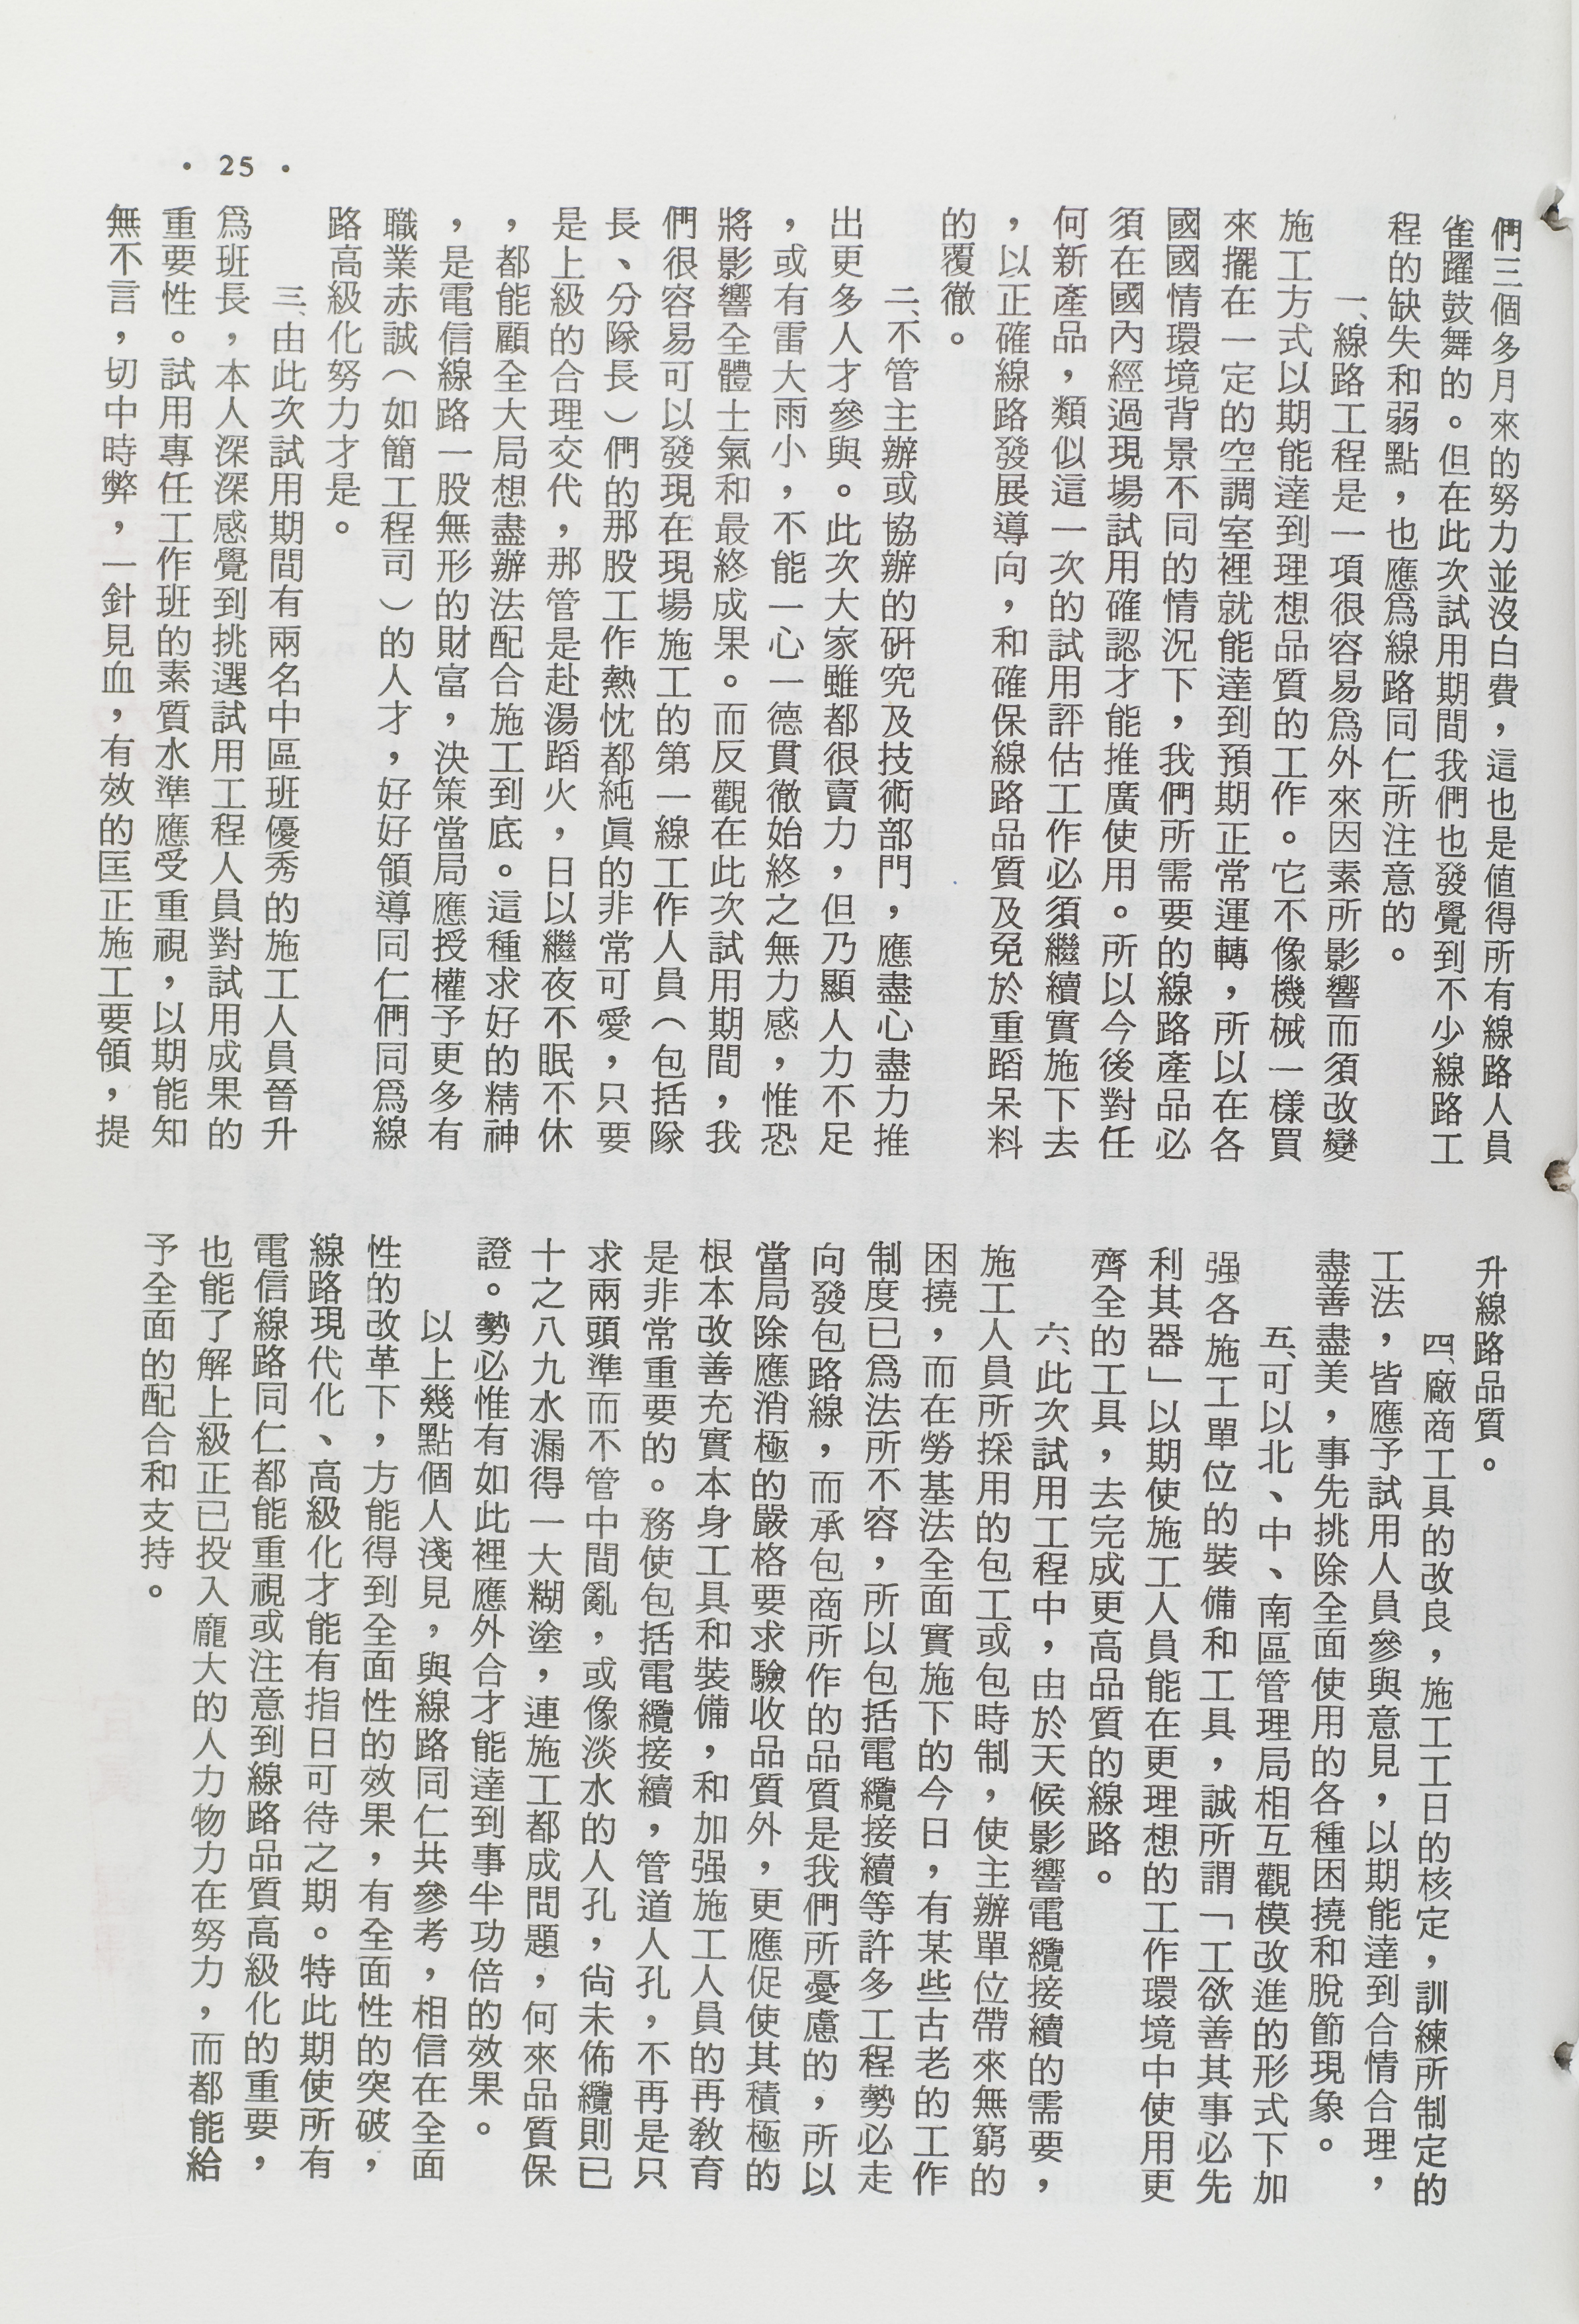 們三個多月來的努力並沒白費，這也是値得所有線路人員
雀躍鼓舞的。但在此次試用期間我們也發覺到不少線路工
程的缺失和弱點，也應爲線路同仁所注意的。
一、線路工程是一項很容易爲外來因素所影響而須改變
施工方式以期能達到理想品質的工作。它不像機械一樣買
來擺在一定的空調室裡就能達到預期正常運轉，所以在各
國國情環境背景不同的情況下，我們所需要的線路產品必
須在國內經過現場試用確認才能推廣使用。所以今後對任
何新產品，類似這一次的試用評估工作必須繼續實施下去
，以正確線路發展導向，和確保線路品質及免於重蹈呆料
的覆徹。
二、不管主辦或協辦的研究及技術部門，應盡心盡力推
出更多人才參與。此次大家雖都很賣力，但乃顯人力不足
，或有雷大雨小，不能一心一德貫徹始終之無力感，惟恐
將影響全體士氣和最終成果。而反觀在此次試用期間，我
們很容易可以發現在現場施工的第一線工作人員（包括隊
長、分隊長）們的那股工作熱忱都純眞的非常可愛，只要
是上級的合理交代，那管是赴湯蹈火，日以繼夜不眠不休
，都能顧全大局想盡辦法配合施工到底。這種求好的精神
，是電信線路一股無形的財富，決策當局應授權予更多有
職業赤誠（如簡工程司）的人才，好好領導同仁們同爲線
路高級化努力才是。
三、由此次試用期間有兩名中區班優秀的施工人員晉升
爲班長，本人深深感覺到挑選試用工程人員對試用成果的
重要性。試用專任工作班的素質水準應受重視，以期能知
無不言，切中時弊，一針見血，有效的匡正施工要領，提
升線路品質。
四、廠商工具的改良，施工工日的核定，訓練所制定的
工法，皆應予試用人員參與意見，以期能達到合情合理，
盡善盡美，事先挑除全面使用的各種困撓和脫節現象。
五、可以北、中、南區管理局相互觀模改進的形式下加
强各施工單位的裝備和工具，誠所謂「工欲善其事必先
利其器」以期使施工人員能在更理想的工作環境中使用更
齊全的工具，去完成更高品質的線路。
六、此次試用工程中，由於天候影響電纜接續的需要，
施工人員所採用的包工或包時制，使主辦單位帶來無窮的
困撓，而在勞基法全面實施下的今日，有某些古老的工作
制度已爲法所不容，所以包括電纜接續等許多工程勢必走
向發包路線，而承包商所作的品質是我們所憂慮的，所以
當局除應消極的嚴格要求驗收品質外，更應促使其積極的
根本改善充實本身工具和裝備，和加强施工人員的再敎育
是非常重要的。務使包括電纜接續，管道人孔，不再是只
求兩頭準而不管中間亂，或像淡水的人孔，尙未佈纜則已
十之八九水漏得一大糊塗，連施工都成問題，何來品質保
證。勢必惟有如此裡應外合才能達到事半功倍的效果。
以上幾點個人淺見，與線路同仁共參考，相信在全面
性的改革下，方能得到全面性的效果，有全面性的突破，
線路現代化、高級化才能有指日可待之期。特此期使所有
電信線路同仁都能重視或注意到線路品質高級化的重要，
也能了解上級正已投入龐大的人力物力在努力，而都能給
予全面的配合和支持。
• 25 •